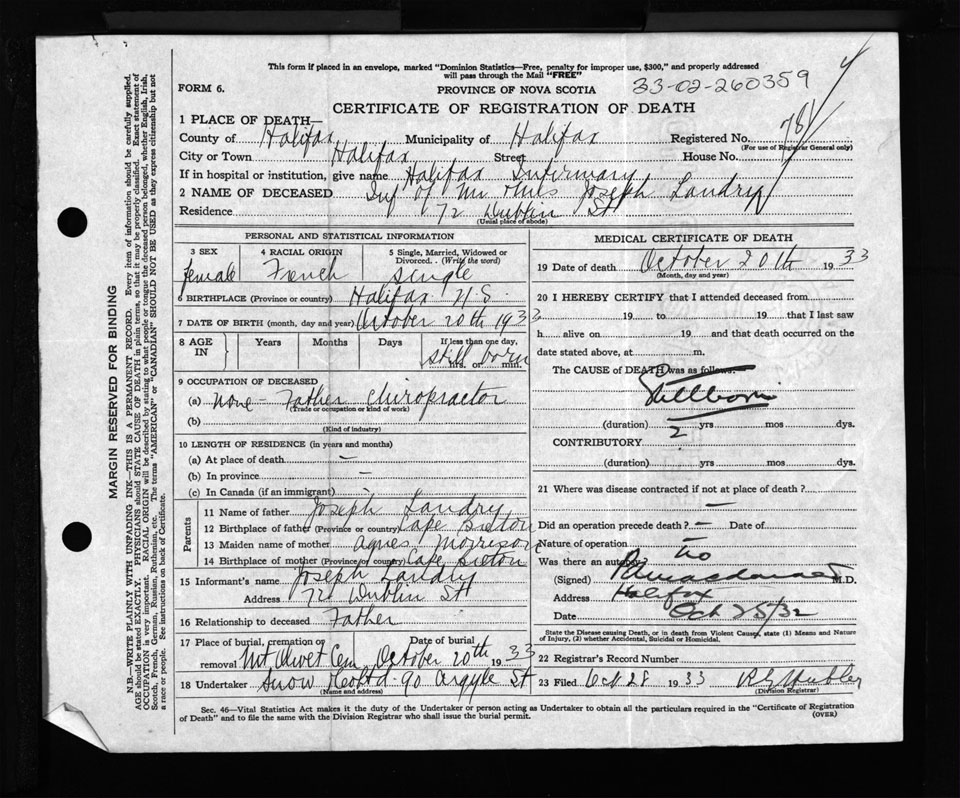 This form if placed in an envelope, marked "Dominion Statistics—Free, penalty for improper use, $300," and properly addressed
will pass through the Mail "FREE"
FORM 6.
PROVINCE OF NOVA SCOTIA
33-02-260359
CERTIFICATE OF REGISTRATION OF DEATH
1 PLACE OF DEATH—
County of Halifax Municipality of Halifax Registered No. 78
(For use of Registrar General only)
City or Town Halifax Street House No.
If in hospital or institution, give name Halifax Infirmary
2 NAME OF DECEASED Inf of Mr & Mrs Joseph Landry
Residence 72 Dublin St
(Usual place of abode)
PERSONAL AND STATISTICAL INFORMATION
3 SEX 4 RACIAL ORIGIN 5 Single, Married, Widowed or
Divorced.. (Write the word)
female French single
6 BIRTHPLACE (Province or country) Halifax N.S.
7 DATE OF BIRTH (month, day and year) October 20th 1933
8 AGE IN Years Months Days If less than one day,
still born
hrs. or min.
9 OCCUPATION OF DECEASED
(a) None - Father Chiropractor
(Trade or occupation or kind of work)
(b)
(Kind of industry)
10 LENGTH OF RESIDENCE (in years and months)
(a) At place of death –
(b) In province –
(c) In Canada (if an immigrant) -
Parents
11 Name of father Joseph Landry
12 Birthplace of father (Province or country) Cape Breton
13 Maiden name of mother Agnes Morrison
14 Birthplace of mother (Province or country) Cape Breton
15 Informant's name Joseph Landry
Address 72 Dublin St
16 Relationship to deceased Father
17 Place of burial, cremation or Date of burial
removal Mt Olivet Cem October 20th 1933
18 Undertaker Snow & Co Ltd - 90 Argyle St
(Name and address)
MEDICAL CERTIFICATE OF DEATH
19 Date of death October 20th 1933
(Month, day and year)
20 I HEREBY CERTIFY that I attended deceased from
19 to 19 that I last saw
h alive on 19 and that death occurred on the
date stated above, at m.
The CAUSE of DEATH was as follows:
Stillborn
(duration) yrs mos dys.
2
CONTRIBUTORY
(duration) yrs mos dys.
21 Where was disease contracted if not at place of death?
–
Did an operation precede death? – Date of
Nature of operation –
Was there an autopsy? no
(Signed) M.D.
Address Halifax
Date Oct 25/32
State the Disease causing Death, or in death from Violent Causes, state (1) Means and Nature
of Injury, (2) whether Accidental, Suicidal or Homicidal.
22 Registrar's Record Number
23 Filed Oct 28 1933
(Division Registrar)
Sec. 46—Vital Statistics Act makes it the duty of the Undertaker or person acting as Undertaker to obtain all the particulars required in the "Certificate of Registration
of Death" and to file the same with the Division Registrar who shall issue the burial permit. (OVER)
MARGIN RESERVED FOR BINDING
N.B.—WRITE PLAINLY WITH UNFADING INK—THIS IS A PERMANENT RECORD. Every item of information should be carefully supplied.
AGE should be stated EXACTLY. PHYSICIANS should STATE CAUSE OF DEATH in plain terms, so that it may be properly classified. Exact statement of
OCCUPATION is very important. RACIAL ORIGIN will be described by stating to what people or tongue the deceased person belonged, whether English, Irish,
Scotch, French, German, Russian, Ruthenian, etc. The terms "AMERICAN" or "CANADIAN" SHOULD NOT BE USED as they express citizenship but not
a race or people. See instructions on back of Certificate.